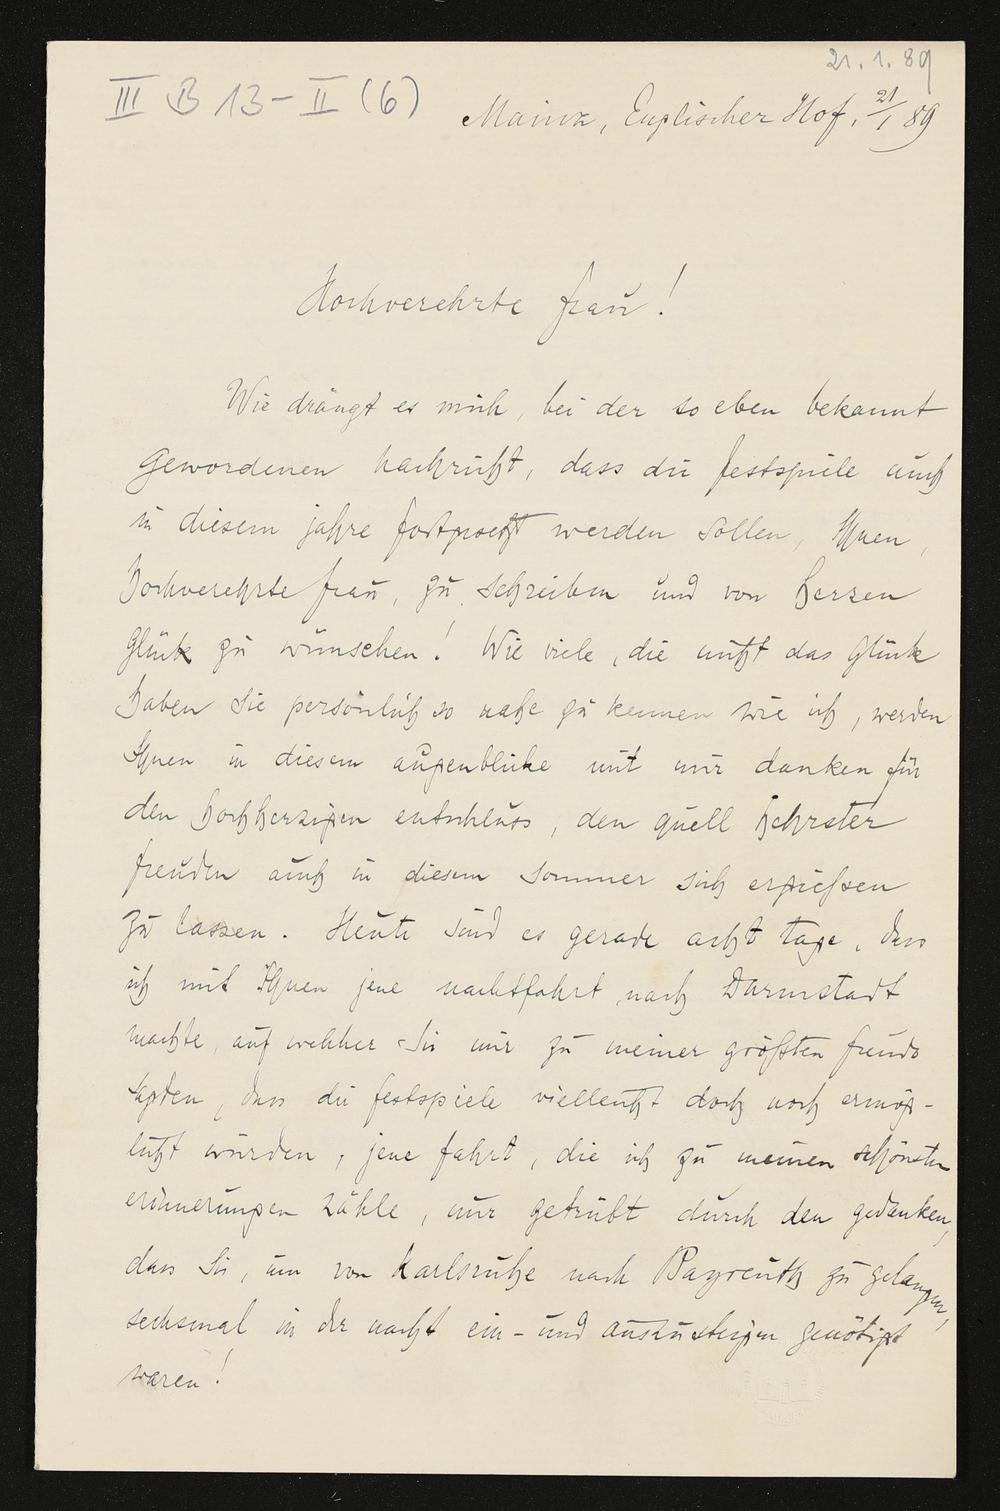 21. 1. 89
III B 13 - II (6)
Mainz, Englischer Hof, 21/1 89
Hochverehrte frau!
Wie drängt es mich, bei der so eben bekannt
gewordenen nachricht, dass die festspiele auch
in diesem jahre fortgesetzt werden sollen, Ihnen,
hochverehrte frau, zu schreiben und von herzen
glück zu wünschen! Wie viele, die nicht das glück
haben Sie persönlich so nahe zu kennen wie ich, werden
Ihnen in diesem augenblicke mit mir danken für
den hochherzigen entschluss, den quell hehrster
freuden auch in diesem sommer sich ergießen
zu lassen. Heute sind es gerade acht tage, dass
ich mit Ihnen jene nachtfahrt nach Darmstadt
machte, auf welcher Sie mir zu meiner größten freude
sagten, dass die festspiele vielleicht doch noch ermög-
licht würden, jene fahrt, die ich zu meinen schönsten
erinnerungen zähle, nur getrübt durch den gedanken,
dass Sie, um von Karlsruhe nach Bayreuth zu gelangen,
sechsmal in der nacht ein- und auszusteigen genötigt
waren!